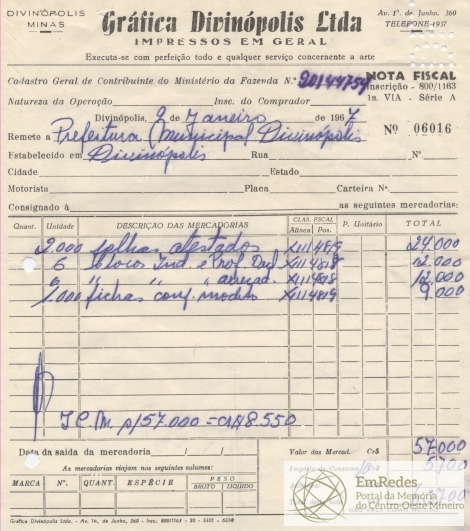 DIVINÓPOLIS
MINAS
Gráfica Divinópolis Ltda
IMPRESSOS EM GERAL
Av. 1º. de Junho, 360
TELEFONE-1937
Executa-se com perfeição todo e qualquer serviço concernente a arte
Cadastro Geral de Contribuinte do Ministério da Fazenda N.º 20144754
NOTA FISCAL
Inscrição - 800/1163
1a. VIA - Série A
Natureza da Operação Insc. do Comprador
Divinópolis, 2 de Janeiro de 1967
Nº 06016
Remete a Prefeitura Municipal Divinópolis
Estabelecido em Divinópolis Rua Nº
Cidade Estado
Motorista Placa Carteira Nº.
Consignado à as seguintes mercadorias:
Quant. Unidade DESCRIÇÃO DAS MERCADORIAS CLAS. FISCAL Alínea Pos. P. Unitário TOTAL
2.000 folhas atestados 24.000
6 Bloco Ind. e Prof. 12.000
6 " " " 12.000
1.000 fichas conf. modelo 9.000
I.C.M. s/57.000 = Cr$ 8.550
Data da saída da mercadoria / /
Valor das Mercad. Cr$ 57.000
As mercadorias viajam nos seguintes volumes:
MARCA N°. QUANT. ESPÉCIE PESO BRUTO LIQUIDO
EmRedes
Portal da Memória
do Centro-Oeste Mineiro
Gráfica Divinópolis Ltda. - Av. 1º. de Junho, 360 - Insc. 800/1163